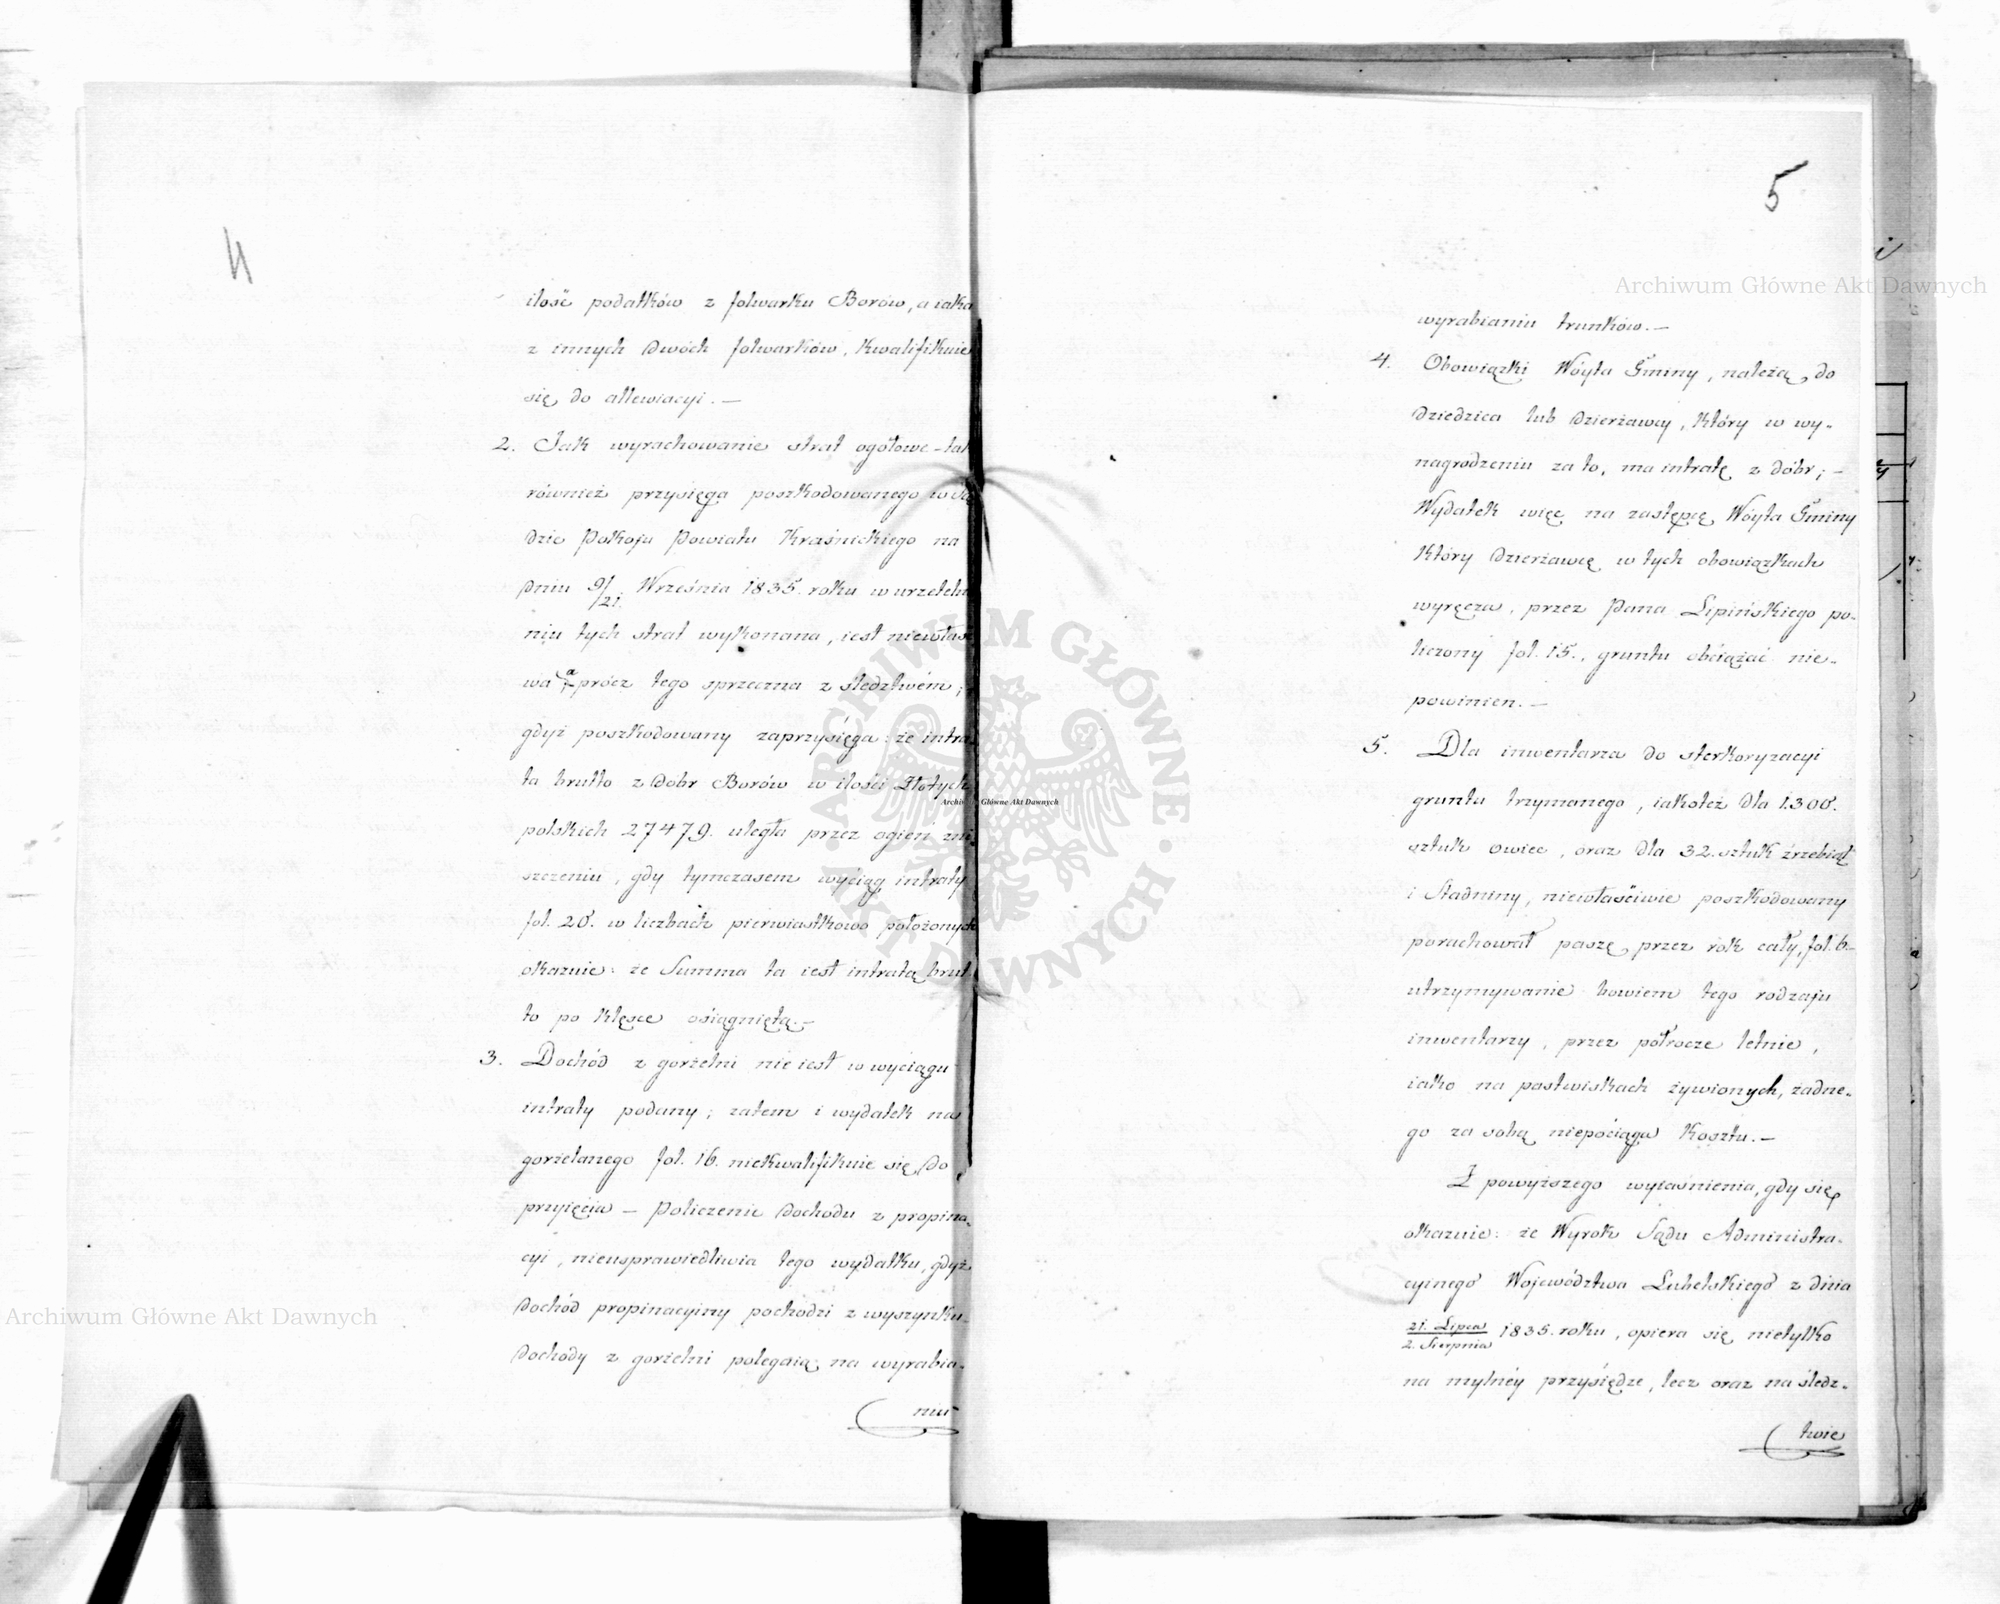 4
ilość podatków z folwarku Borów, a iaka
z innych dwóch folwarków, kwalifikuie
się do allewiacyi. —
2. Jak wyrachowanie strat ogółowe - tak
również przysięga poszkodowanego w Są
dzie Pokoju Powiatu Kraśnickiego na
dniu 9/21. Września 1835. roku w urzetelnie
niu tych strat wykonana, iest niewłaści
wa a prócz tego sprzeczna z śledztwem;
gdyż poszkodowany zaprzysięga: że intra
ta brutto z dóbr Borów w ilości Złotych
polskich 27479. uległa przez ogień zni
szczeniu, gdy tymczasem wyciąg intraty
fol. 20. w liczbach pierwiastkowo położonych
okazuie: że Summa ta iest intratą brut
to po klęsce osiągniętą. —
3. Dochód z gorzelni nie iest w wyciągu
intraty podany; zatem i wydatek na
gorzelanego fol. 16. niekwalifikuie się do
przyięcia — Policzenie dochodu z propina-
cyi, nieusprawiedliwia tego wydatku, gdyż
dochód propinacyiny pochodzi z wyszynku
dochody z gorzelni polegaią na wyrabia-
niu
5
wyrabianiu trunków. —
4. Obowiązki Wóyta Gminy, należą do
dziedzica lub dzierżawcy, który w wy-
nagrodzeniu za to, ma intratę z dóbr; —
Wydatek więc na zastępcę Wóyta Gminy
który dzierżawcę w tych obowiązkach
wyręcza, przez Pana Lipińskiego po-
liczony fol. 15., gruntu obciążać nie-
powinien. —
5. Dla inwentarza do sterkoryzacyi
gruntu trzymanego, iakoteż dla 1300.
sztuk owiec, oraz dla 32. sztuk źrzebiąt
i Stadniny, niewłaściwie poszkodowany
porachował paszę przez rok cały, fol. 6-
utrzymywanie bowiem tego rodzaju
inwentarzy, przez półrocze letnie,
iako na pastwiskach żywionych, żadne-
go za sobą niepociąga kosztu. —
Z powyższego wyiaśnienia, gdy się
okazuie: że Wyrok Sądu Administra-
cyinego Województwa Lubelskiego z dnia
21. Lipca / 2. Sierpnia 1835. roku, opiera się nietylko
na mylnéy przysiędze, lecz oraz na śledz-
twie
Archiwum Główne Akt Dawnych
Archiwum Główne Akt Dawnych
Archiwum Główne Akt Dawnych
ARCHIWUM GŁÓWNE · AKT DAWNYCH ·